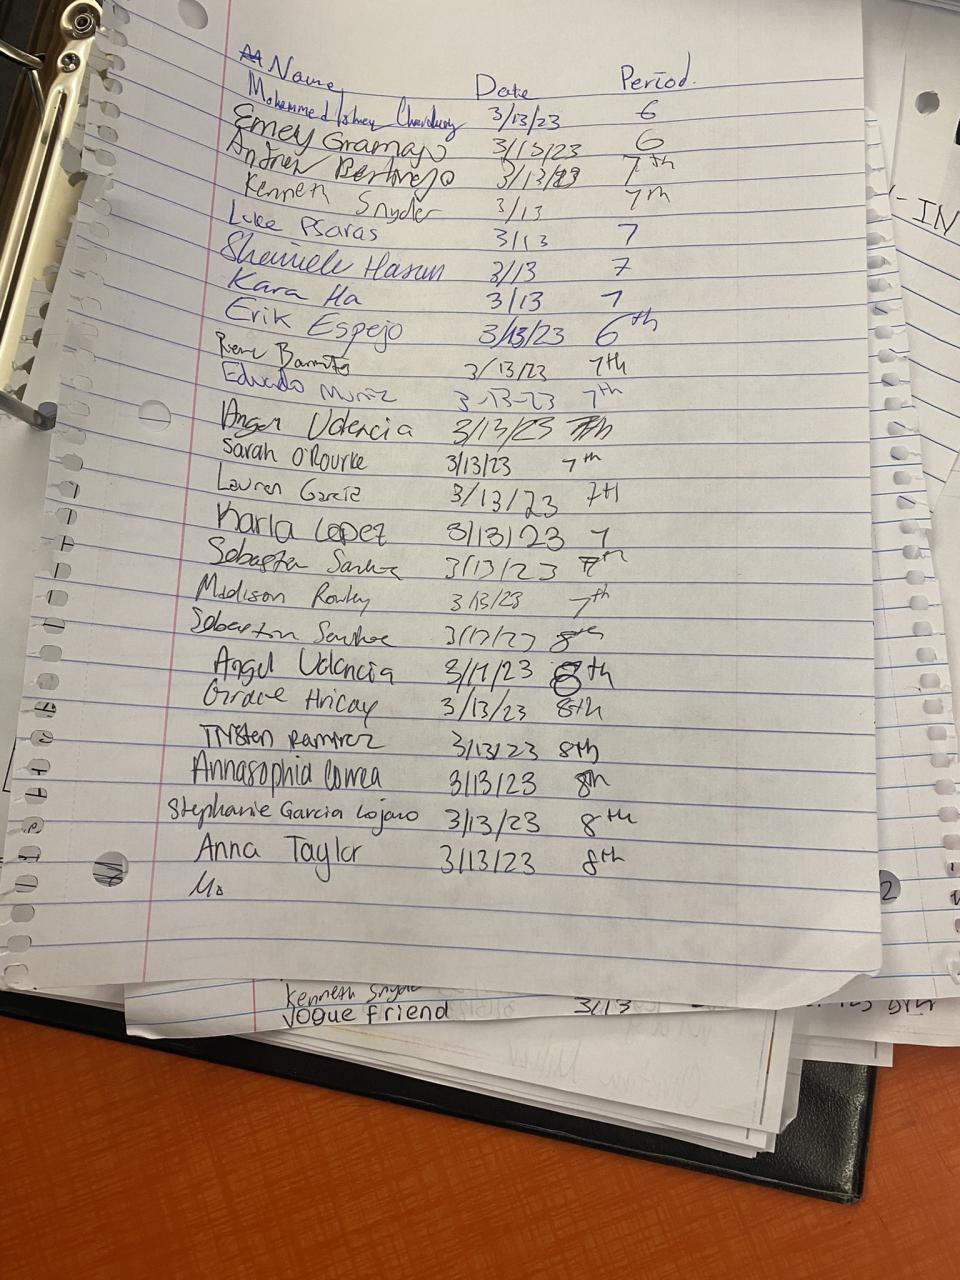 Name Date Period.
Mohammed Chowdhury 3/13/23 6
Emey Gramajo 3/13/23 6
Andrew Bertinejo 3/13/23 7th
Kenneth Snyder 3/13 7th
Luke Psaras 3/13 7
Hasan 3/13 7
Kara Ha 3/13 7
Erik Espejo 3/13/23 6th
Rene 3/13/23 7th
Eduardo Muniz 3-13-23 7th
Angel Valencia 3/13/23 7th
Sarah O'Rourke 3/13/23 7th
Lauren Garcia 3/13/23 7th
Karla Lopez 3/13/23 7
Sebastian 3/13/23 7th
Madison Rowley 3/13/23 7th
Sebastian 3/13/23 8th
Angel Valencia 3/13/23 8th
Grace Hricay 3/13/23 8th
Tristen Ramirez 3/13/23 8th
Annasophia Correa 3/13/23 8th
Stephanie Garcia Lojano 3/13/23 8th
Anna Taylor 3/13/23 8th
Ma
Kenneth Snyder
Vogue friend 3/13
-IN
2